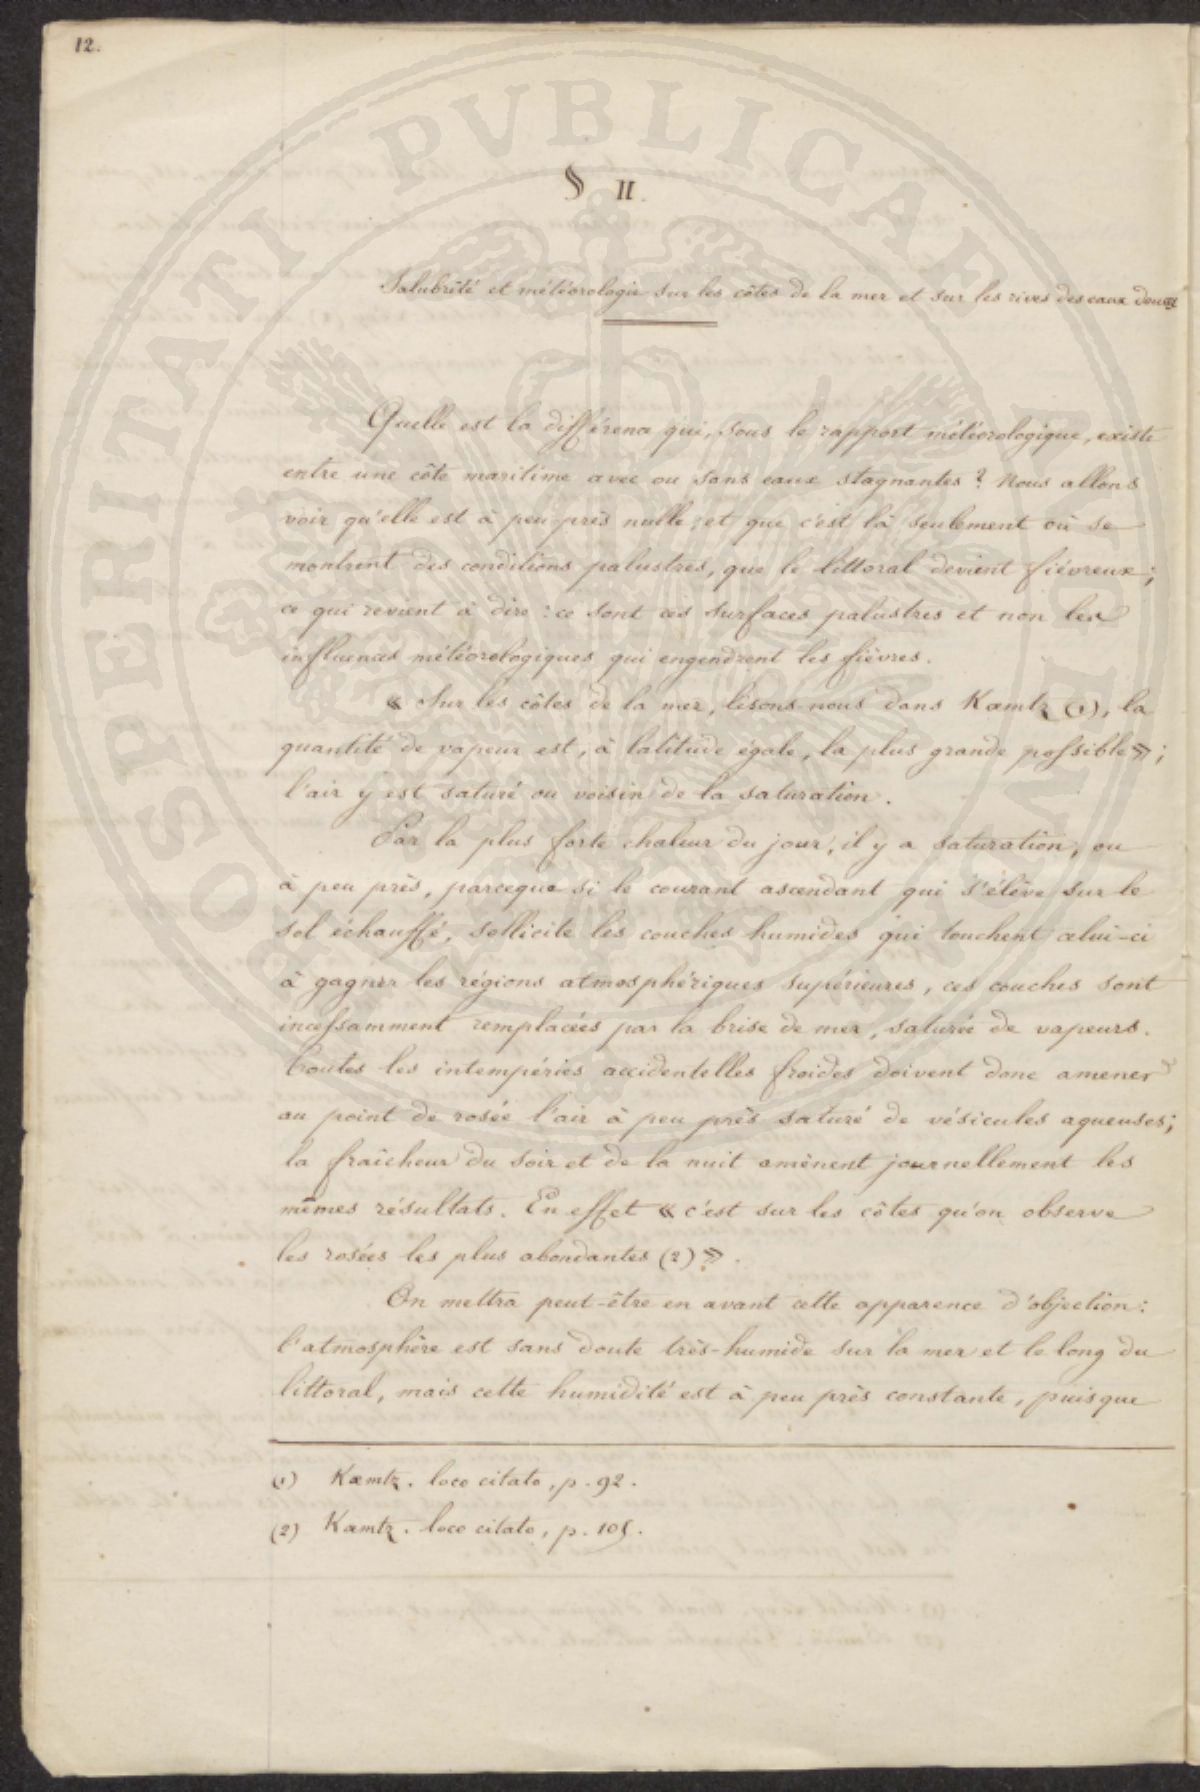 12.
§ II.
Salubrité et météorologie sur les côtes de la mer et sur les rives des eaux douces
Quelle est la différence qui, sous le rapport météorologique, existe
entre une côte maritime avec ou sans eaux stagnantes ? Nous allons
voir qu'elle est à peu près nulle, et que c'est là seulement où se
montrent des conditions palustres, que le littoral devient fiévreux ;
ce qui revient à dire : ce sont ces surfaces palustres et non les
influences météorologiques qui engendrent les fièvres.
« Sur les côtes de la mer, lisons-nous dans Kæmtz (1), la
quantité de vapeur est, à latitude égale, la plus grande possible » ;
l'air y est saturé ou voisin de la saturation.
Par la plus forte chaleur du jour, il y a saturation, ou
à peu près, parceque si le courant ascendant qui s'élève sur le
sol échauffé, sollicite les couches humides qui touchent celui-ci
à gagner les régions atmosphériques supérieures, ces couches sont
incessamment remplacées par la brise de mer, saturée de vapeurs.
Toutes les intempéries accidentelles froides doivent donc amener
au point de rosée l'air à peu près saturé de vésicules aqueuses ;
la fraîcheur du soir et de la nuit amènent journellement les
mêmes résultats. En effet « c'est sur les côtes qu'on observe
les rosées les plus abondantes (2) ».
On mettra peut-être en avant cette apparence d'objection :
l'atmosphère est sans doute très-humide sur la mer et le long du
littoral, mais cette humidité est à peu près constante, puisque
(1) Kæmtz. loco citato, p. 92.
(2) Kæmtz. loco citato, p. 105.
PROSPERITATI PVBLICAE